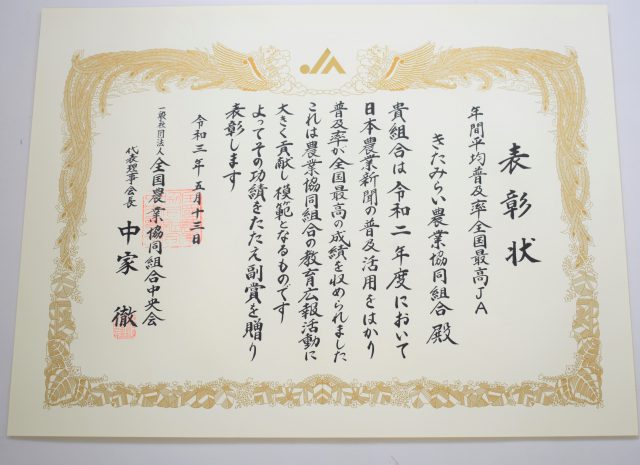 表彰状
年間平均普及率全国最高JA
きたみらい農業協同組合 殿
貴組合は令和二年度において
日本農業新聞の普及活用をはかり
普及率が全国最高の成績を収められました
これは農業協同組合の教育広報活動に
大きく貢献し模範となるものです
よってその功績をたたえ副賞を贈り
表彰します
令和三年五月十三日
一般社団法人 全国農業協同組合中央会
代表理事会長 中家 徹